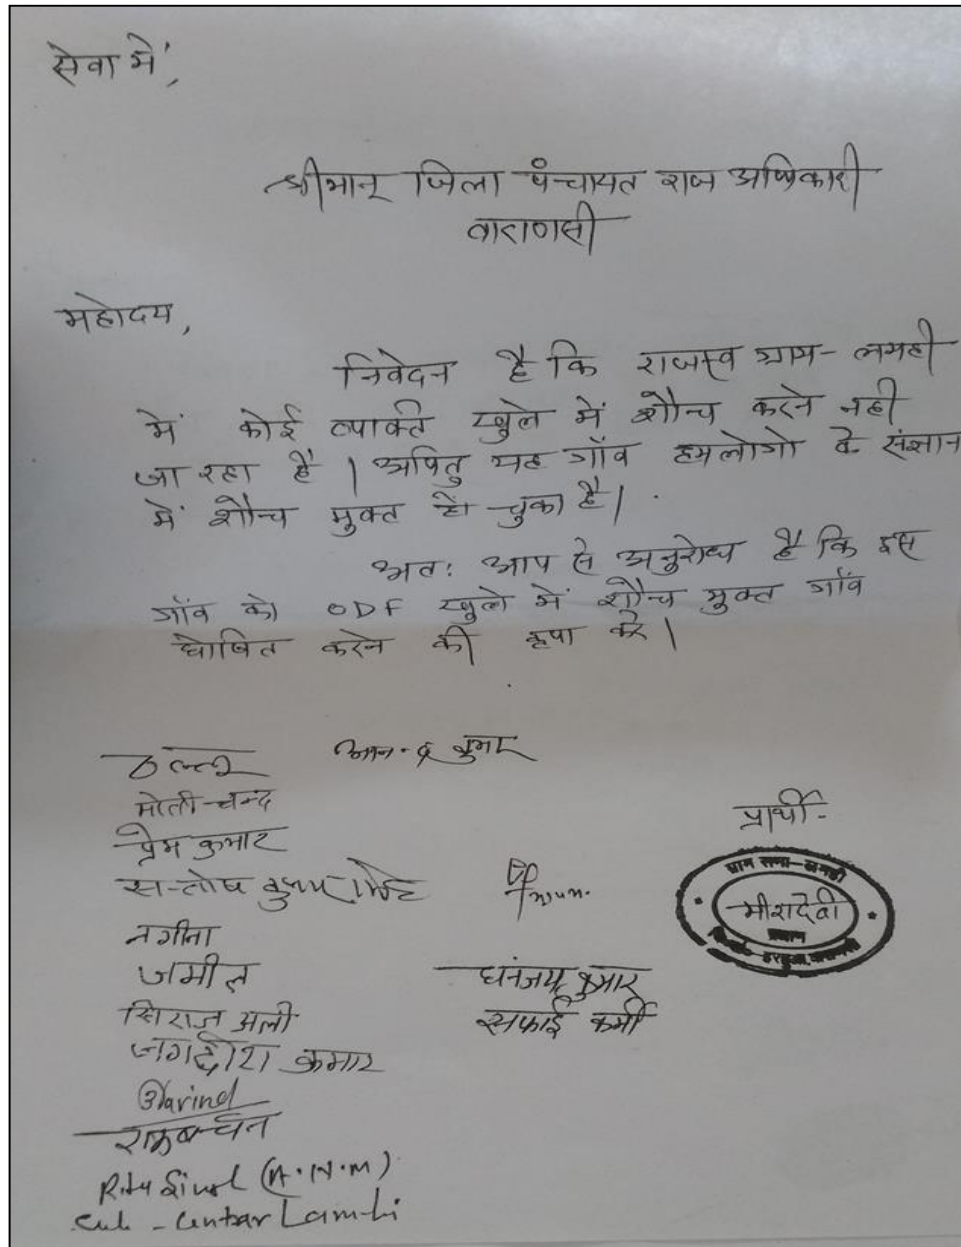 सेवा में,
श्रीमान् जिला पंचायत राज अधिकारी
वाराणसी
महोदय,
निवेदन है कि राजस्व ग्राम - लमही
में कोई व्यक्ति खुले में शौच करने नही
जा रहा है | अपितु यह गाँव हमलोगो के संज्ञान
में शौच मुक्त हो चुका है|
अतः आप से अनुरोध है कि इस
गाँव को ODF खुले में शौच मुक्त गाँव
घोषित करने की कृपा करें |
लल्लू
मोती चन्द
प्रेम कुमार
सन्तोष कुमार
नगीना
जमील
सिराज अली
जगदीश कुमार
Arvind
रामबचन
Ritu Singh (A.N.M)
Sub - Center Lamhi
आनन्द कुमार
धनंजय कुमार
सफाई कर्मी
प्रार्थी -
ग्राम सभा - लमही
मीरादेवी
प्रधान